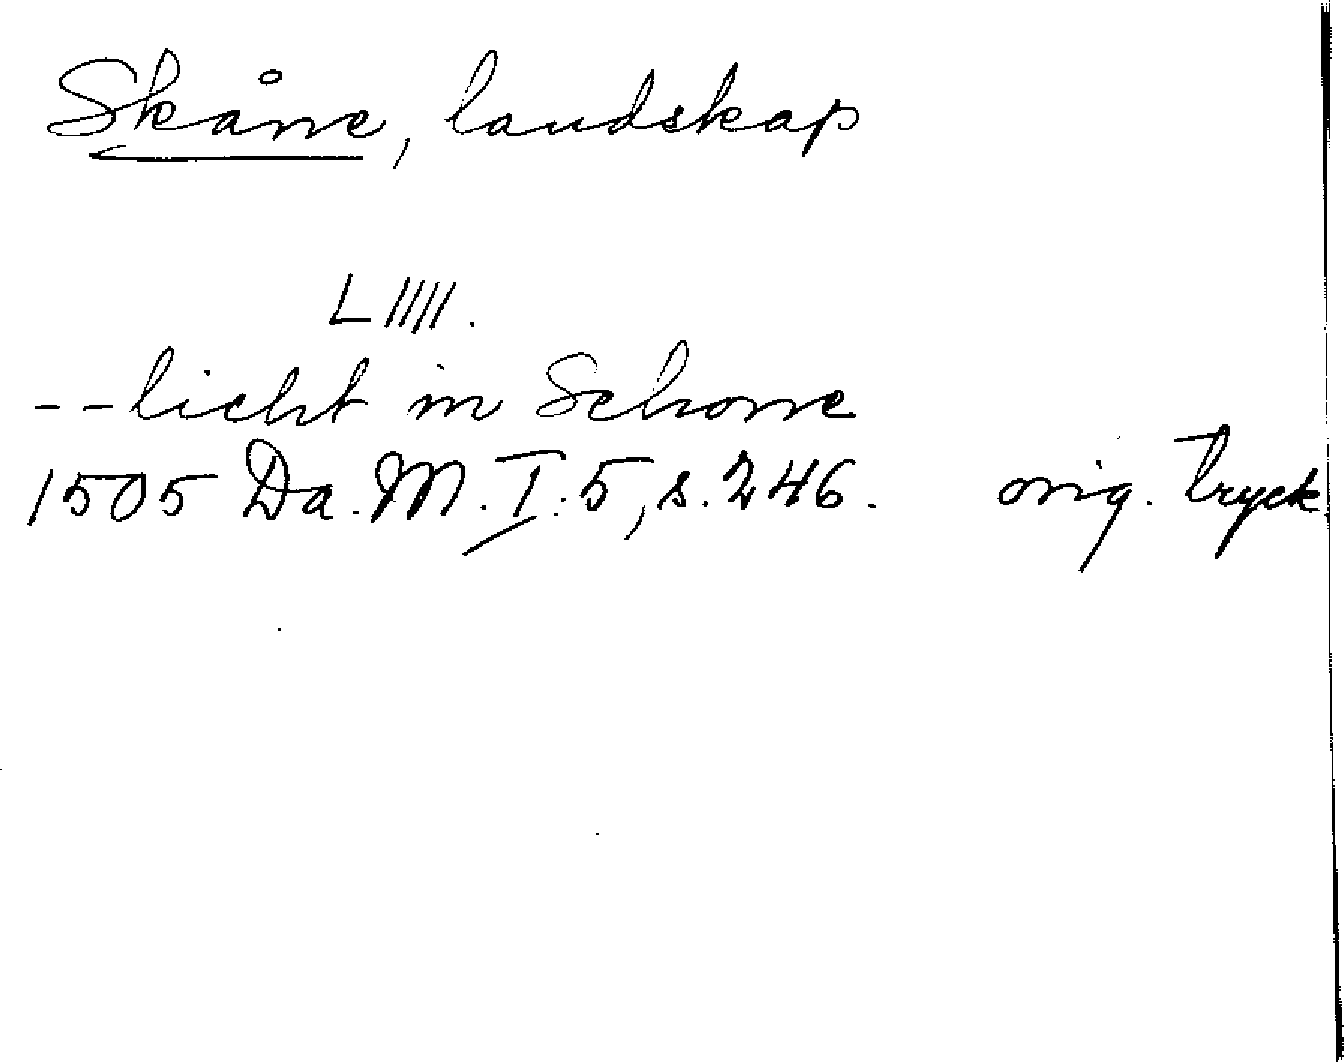 Skåne, landskap
L IIII.
-- licht in Schone
1505 Da. M. I. 5, s. 246. orig. tryck